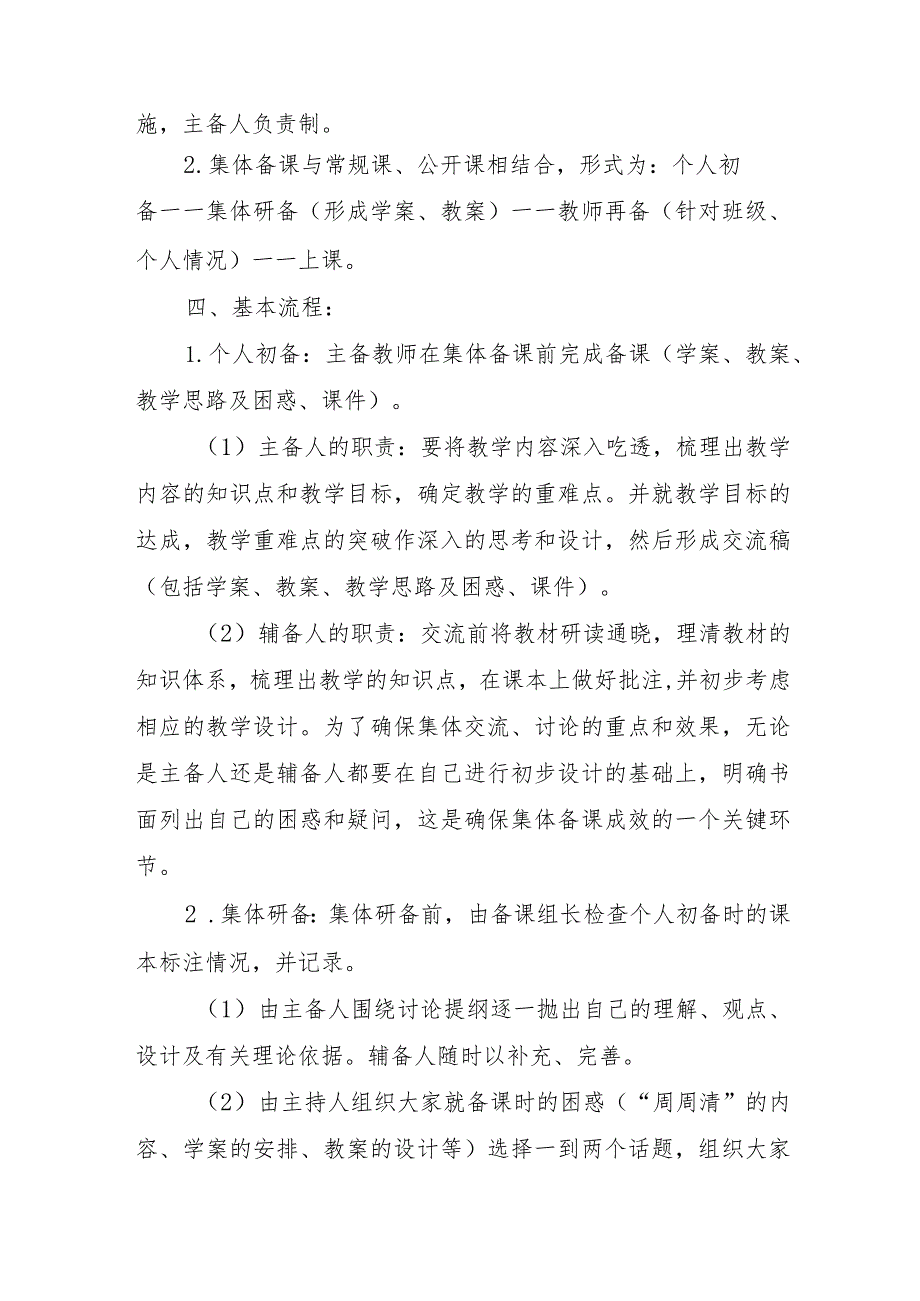 施，主备人负责制。
2.集体备课与常规课、公开课相结合，形式为：个人初
备一一集体研备（形成学案、教案）一一教师再备（针对班级、
个人情况）一一上课。
四、基本流程：
1.个人初备：主备教师在集体备课前完成备课（学案、教案、
教学思路及困惑、课件）。
（1）主备人的职责：要将教学内容深入吃透，梳理出教学
内容的知识点和教学目标，确定教学的重难点。并就教学目标的
达成，教学重难点的突破作深入的思考和设计，然后形成交流稿
（包括学案、教案、教学思路及困惑、课件）。
（2）辅备人的职责：交流前将教材研读通晓，理清教材的
知识体系，梳理出教学的知识点，在课本上做好批注,并初步考虑
相应的教学设计。为了确保集体交流、讨论的重点和效果，无论
是主备人还是辅备人都要在自己进行初步设计的基础上，明确书
面列出自己的困惑和疑问，这是确保集体备课成效的一个关键环
节。
2 .集体研备：集体研备前，由备课组长检查个人初备时的课
本标注情况，并记录。
（1）由主备人围绕讨论提纲逐一抛出自己的理解、观点、
设计及有关理论依据。辅备人随时以补充、完善。
（2）由主持人组织大家就备课时的困惑（“周周清”的内
容、学案的安排、教案的设计等）选择一到两个话题，组织大家